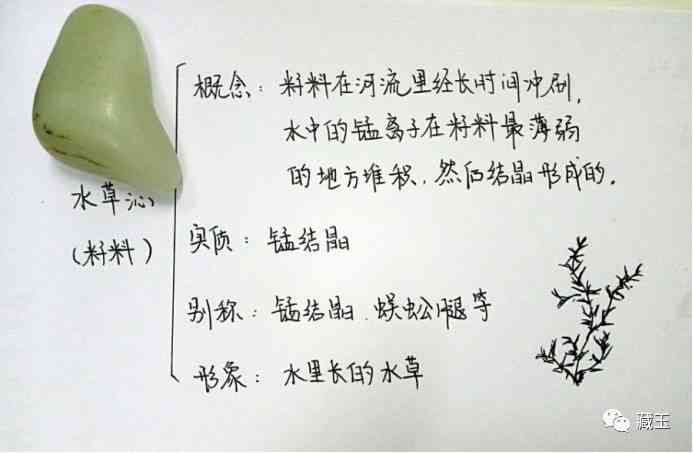 概念：籽料在河流里经长时间冲刷，
水中的锰离子在籽料最薄弱
的地方堆积，然后结晶形成的。
水草沁
（籽料）
实质：锰结晶
别称：锰结晶、蜈蚣腿等
形象：水里长的水草
藏玉